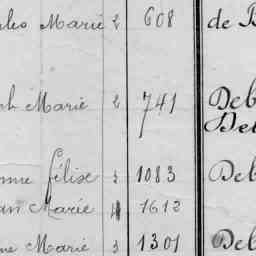 les Marie 2 608 de B
ph Marie 2 741 Deb
Deb
nne félise 3 1083 Deb
an Marie 4 1612
ne Marie 3 1301 Deb